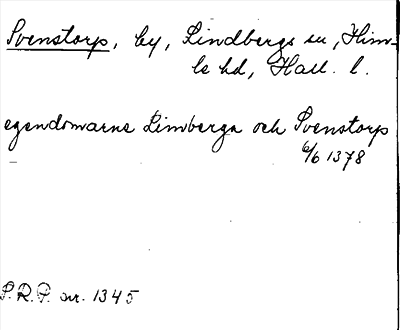 Svenstorp, by, Lindbergs sn, Him-
le hd, Hall. l.
egendomarne Limberga och Svenstorp
6/6 1378
S.R.P. nr. 1345